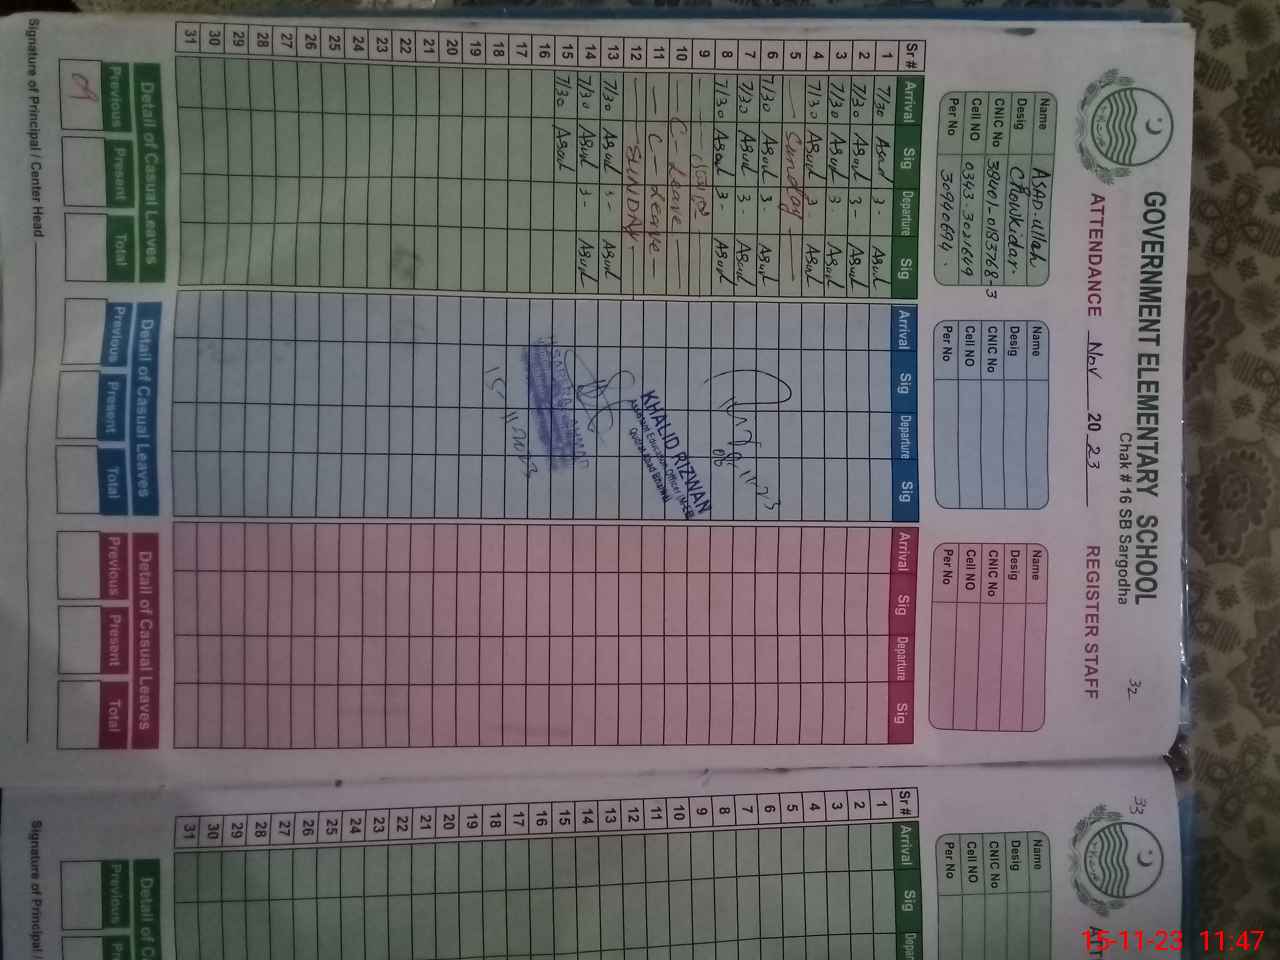 32
GOVERNMENT ELEMENTARY SCHOOL
Chak # 16 SB Sargodha
ATTENDANCE Nov 2023 REGISTER STAFF
Name ASAD.ullah
Desig Chowkidar.
CNIC No 38401-0183768-3
Cell NO 0343-3021649
Per No 30940694.
Name
Desig
CNIC No
Cell NO
Per No
Name
Desig
CNIC No
Cell NO
Per No
Sr # Arrival Sig Departure Sig Arrival Sig Departure Sig Arrival Sig Departure Sig
1 7/30 Asad 3- Asad
2 7/30 Asad 3- Asad
3 7/30 Asad 3- Asad
4 7/30 Asad 3- Asad
5 — Sunday —
6 7/30 Asad 3- Asad
7 7/30 Asad 3- Asad
8 7/30 Asad 3- Asad
9
10 — C- Leave —
11 — C- Leave —
12 — SUNDAY —
13 7/30 Asad 3- Asad
14 7/30 Asad 3- Asad
15 7/30 Asad
16
17
18
19
20
21
22
23
24
25
26
27
28
29
30
31
KHALID RIZWAN
Assistant Education Officer (M-EE)
15-11-2023
Detail of Casual Leaves Detail of Casual Leaves Detail of Casual Leaves
Previous Present Total Previous Present Total Previous Present Total
09
Signature of Principal / Center Head
33
Name
Desig
CNIC No
Cell NO
Per No
Sr # Arrival Sig Depar
1
2
3
4
5
6
7
8
9
10
11
12
13
14
15
16
17
18
19
20
21
22
23
24
25
26
27
28
29
30
31
Detail of C
Previous Pre
Signature of Principal /
15-11-23 11:47